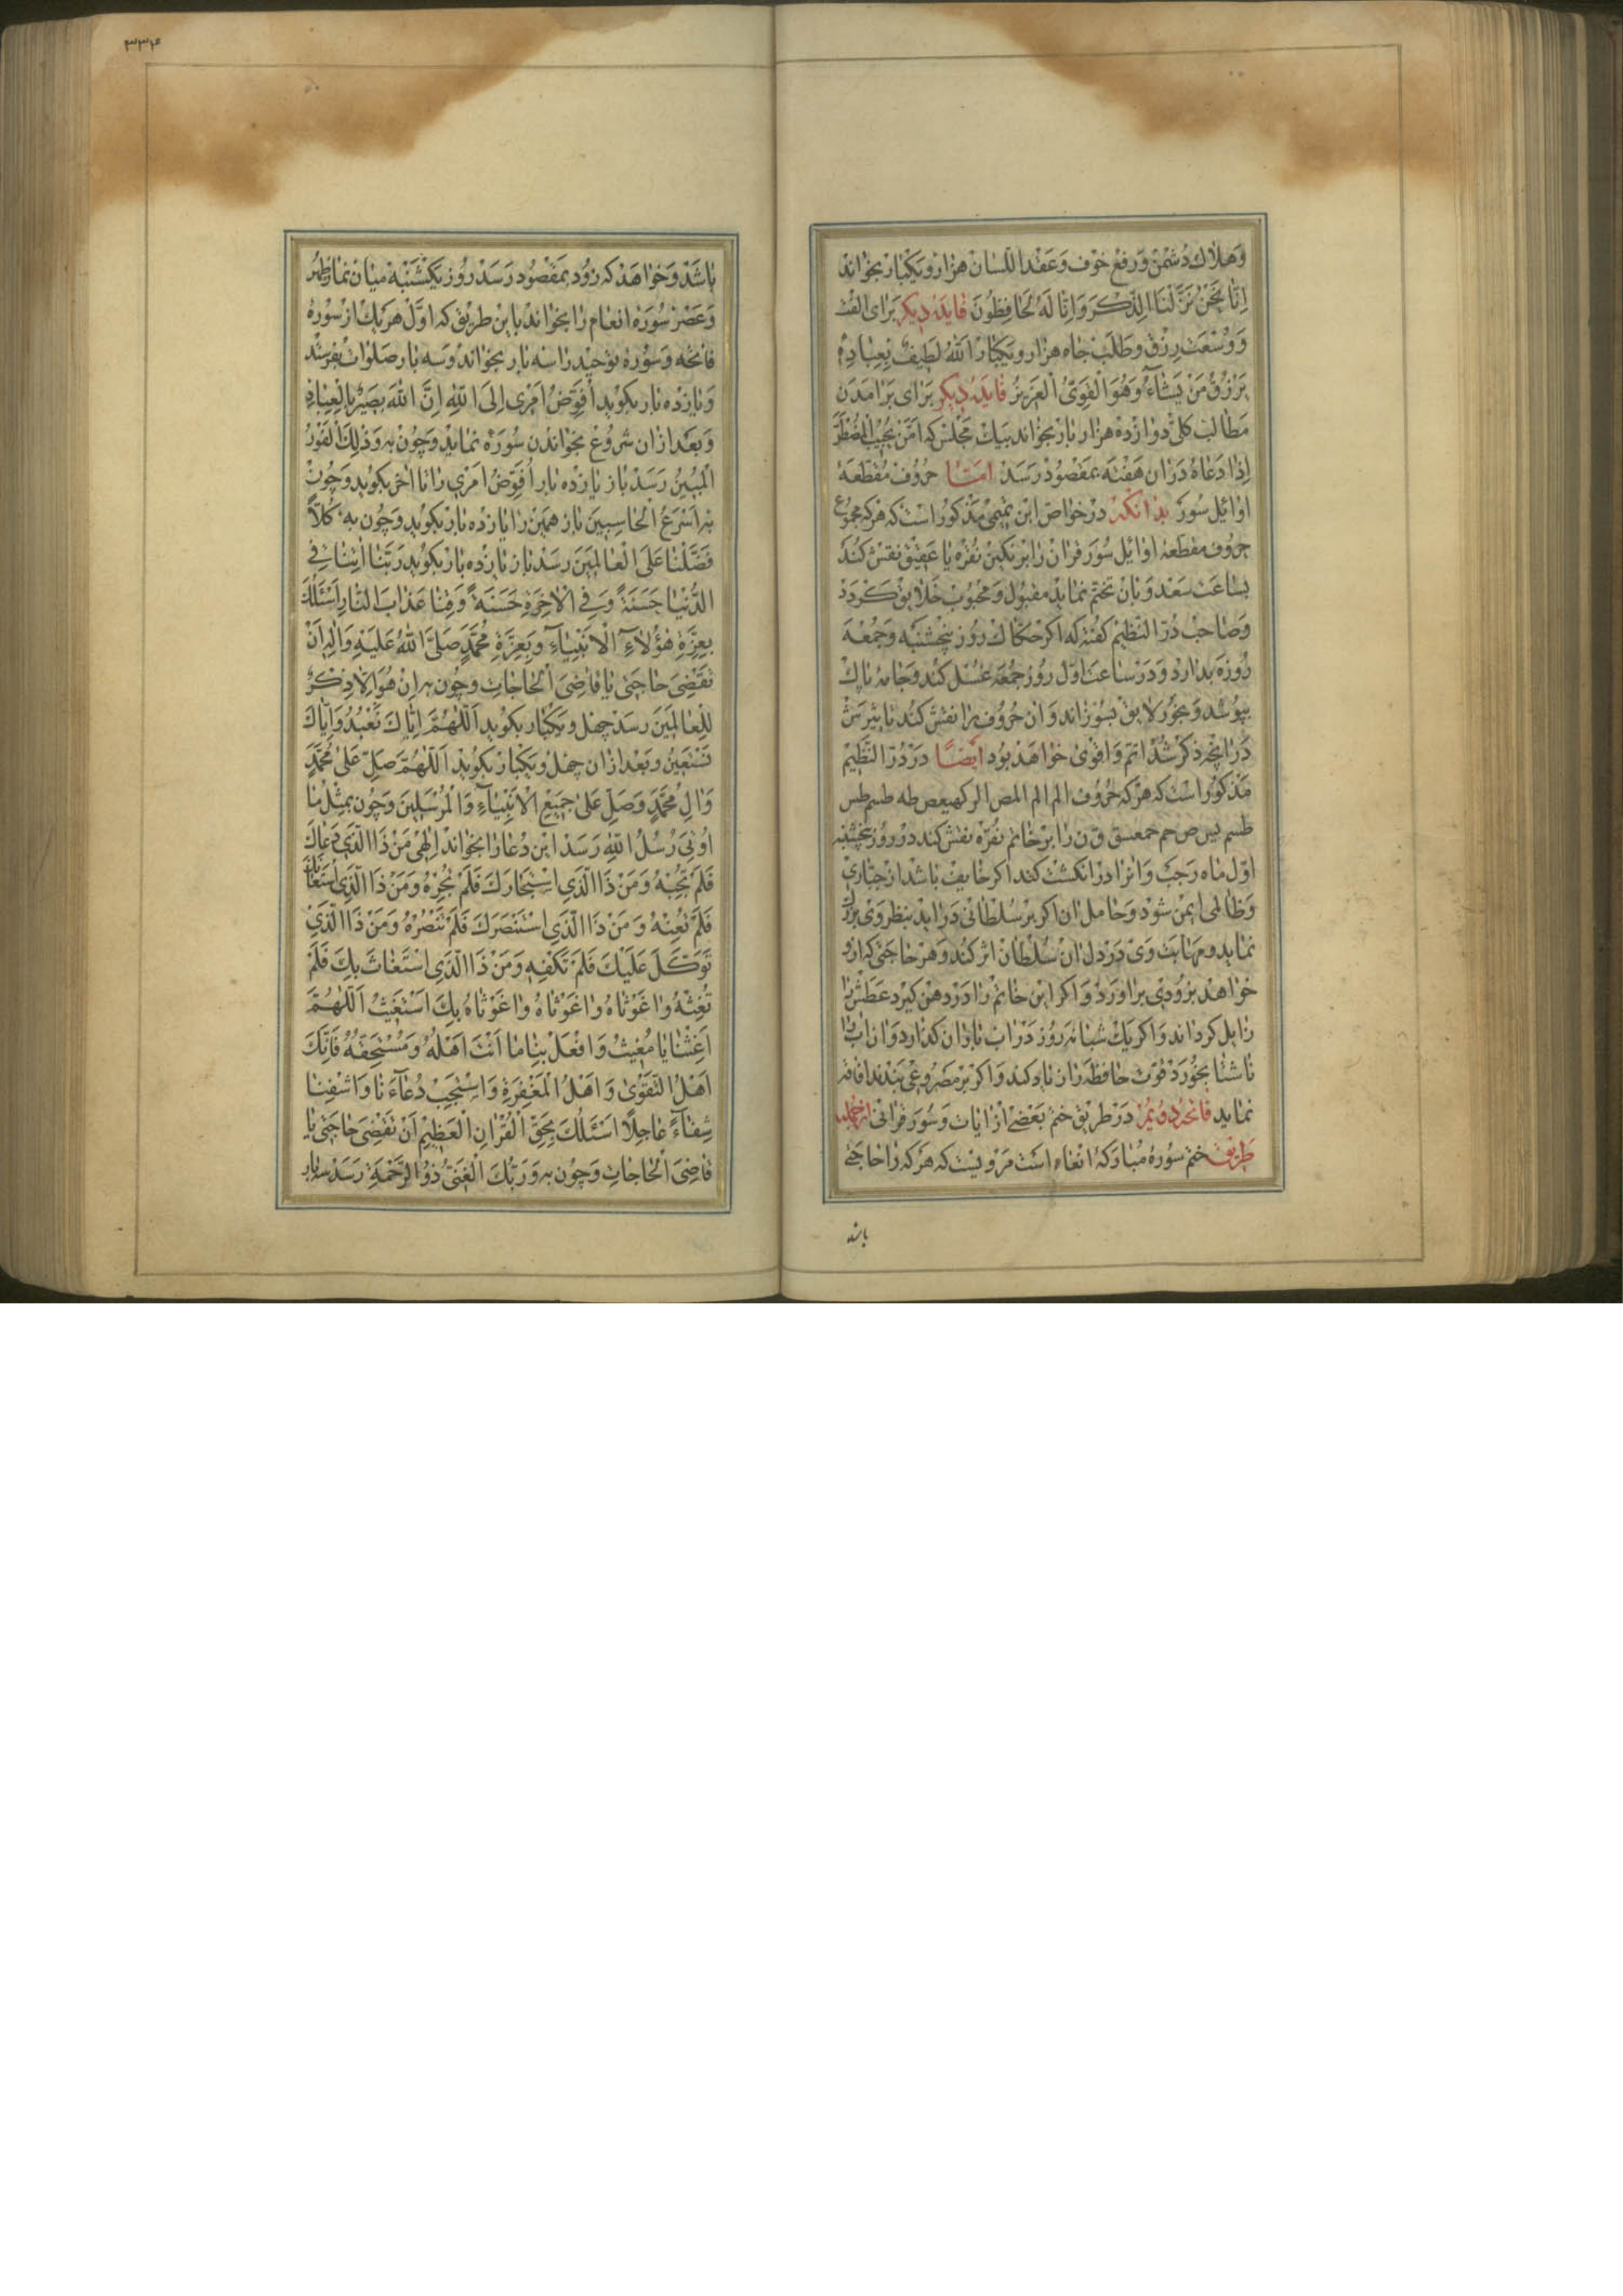 وَهلاك دُشمَن وَرفع خوف وَعَقد اللّسان هزار و يكبار بخواند
اِنّا نَحنُ نَزَّلنَا الذِّكرَ وَاِنّا لَهُ لَحافِظُونَ فايدهٔ ديكر براى الفت
وَوُسعَت رِزق وطلَب جاه هزار و يكبار اَللهُ لَطيفٌ بِعِبادِهِ
يَرزُقُ مَن يَشآءُ وَهُوَ القَوِىُّ العَزيزُ فايدهٔ ديكر براى برامدن
مطالب كلّى دوازده هزار بار بخواند بيك مجلس كه اَمَّن يُجيبُ المُضطَرَّ
اِذا دَعاهُ دران هفته بمقصود رسد امّا حروف مقطّعه
اوائيل سُوَر بدانكه در خواص ابن تميمى مذكور است كه هركه مجموع
حروف مقطعهٔ اوائيل سُوَر قران را بر نكين نقره يا عقيق نقش كند
بساعت سعد و بان تختم نمايد مقبول و محبوب خلايق كردد
وصاحب درّ النظيم كفته كه اكر حكّاك روز پنجشنبه وجمعه
روزه بدارد و در ساعت اوّل روز جمعه غسل كند و جامهٔ پاك
بپوشد و بخور لايق بسوزاند و ان حروف را نقش كند تاثيرش
در انچه ذكر شد اتم و اقوى خواهد بود ايضًا در درّ النظيم
مذكور است كه هركه حروف الم الم المص الر كهيعص طه طسم طس
طسم يس ص حم حمعسق ق ن را بر خاتم نقره نقش كند در روز پنجشنبه
اوّل ماه رجب و انرا در انكشت كند اكر خايف باشد از جبّارى
وظالمى ايمن شود و حامل ان اكر بر سلطانى درايد بنظر وى بزرك
نمايد و مهابت وى در دل ان سلطان اثر كند و هر حاجتى كه ازو
خواهد بزودى براورد و اكر اين خاتم را در دهن كيرد عطش را
زايل كرداند و اكر يك شبانه روز در اب باران كذارد و ازان اب
ناشتا بخورد قوّت حافظه را زياد كند و اكر بر مصروعى بندند افاقه
نمايد فاتحهٔ دويُم در طريق ختم بعضى از ايات و سُوَر قرانى ازجمله
طريق ختم سورهٔ مباركهٔ انعام است مرويست كه هركه را حاجتى
باشد
٣٣٤
باشد و خواهد كه زود بمقصود رسد روز يكشنبه ميان نماز ظهر
وعصر سورهٔ انعام را بخواند باين طريق كه اوّل هريك از سورهٔ
فاتحه و سورهٔ توحيد را سه بار بخواند و سه بار صلوات بفرستد
و يازده بار بكويد اُفَوِّضُ اَمرى اِلَى اللهِ اِنَّ اللهَ بَصيرٌ بِالعِبادِ
و بعد ازان شروع بخواندن سوره نمايد و چون به وَذلِكَ الفَوزُ
المُبينُ رسد باز يازده بار اُفَوِّضُ اَمرى را تا اخر بكويد و چون
به اَسرَعُ الحاسِبينَ باز همين را يازده بار بكويد و چون به كُلّاً
فَضَّلنا عَلَى العالَمينَ رسد باز يازده بار بكويد رَبَّنا اتِنا فِى
الدُّنيا حَسَنَةً وَفِى الاخِرَةِ حَسَنَةً وَقِنا عَذابَ النّارِ اَسئَلُكَ
بِعِزَّةِ هؤُلآءِ الاَنبِيآءِ وَبِعِزَّةِ مُحَمَّدٍ صَلَّى اللهُ عَلَيهِ وَالِهِ اَن
تَقضِىَ حاجَتى يا قاضِىَ الحاجاتِ و چون به اِن هُوَ اِلّا ذِكرٌ
لِلعالَمينَ رسد چهل و يكبار بكويد اَللّهُمَّ اِيّاكَ نَعبُدُ وَاِيّاكَ
نَستَعينُ و بعد ازان چهل و يكبار بكويد اَللّهُمَّ صَلِّ عَلى مُحَمَّدٍ
وَالِ مُحَمَّدٍ وَصَلِّ عَلى جَميعِ الاَنبِيآءِ وَالمُرسَلينَ و چون بمِثلَ ما
اُوتِىَ رُسُلُ اللهِ رسد اين دعا را بخواند اِلهى مَن ذَا الَّذى دَعاكَ
فَلَم تُجِبهُ وَمَن ذَا الَّذِى استَجارَكَ فَلَم تُجِرهُ وَمَن ذَا الَّذِى استَعانَ بِكَ
فَلَم تُعِنهُ وَمَن ذَا الَّذِى استَنصَرَكَ فَلَم تَنصُرهُ وَمَن ذَا الَّذى
تَوَكَّلَ عَلَيكَ فَلَم تَكفِهِ وَمَن ذَا الَّذِى استَغاثَ بِكَ فَلَم
تُغِثهُ وا غَوثاهُ وا غَوثاهُ وا غَوثاهُ بِكَ اَستَغيثُ اَللّهُمَّ
اَغِثنا يا مُغيثُ وَافعَل بِنا ما اَنتَ اَهلُهُ وَمُستَحِقُّهُ فَاِنَّكَ
اَهلُ التَّقوى وَاَهلُ المَغفِرَةِ وَاستَجِب دُعآءَنا وَاشفِنا
شِفآءً عاجِلاً اَسئَلُكَ بِحَقِّ القُرانِ العَظيمِ اَن تَقضِىَ حاجَتى يا
قاضِىَ الحاجاتِ و چون به وَرَبُّكَ الغَنِىُّ ذُو الرَّحمَةِ رسد سه بار